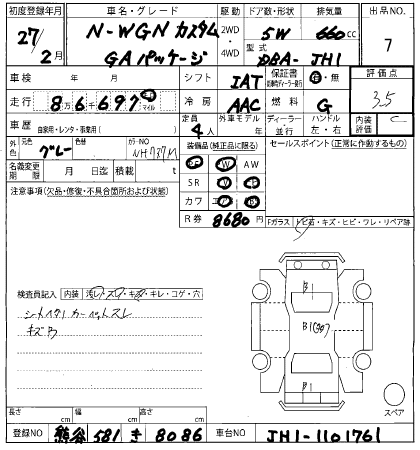 初度登録年月 車名・グレード 駆動 ドア数・形状 排気量 出品NO.
27/2月 N-WGN カスタム 2WD・4WD 5W 660cc 7
GAパッケージ 型式 DBA-JH1
車検 年 月 シフト IAT 保証書 有・無 評価点
走行 8万6千697 km マイル 冷房 AAC 燃料 G 3.5
車歴 自家用・レンタ・事業用( ) 定員 4人 外車モデル 年 ディーラー・並行 ハンドル 左・右 内装評価 C
外色 元色 グレー 色替 カラーNO NH737M 装備品(純正品に限る) セールスポイント(正常に作動するもの)
名義変更期限 月 日迄 積載 t PS PW AW
注意事項(欠品・修復・不具合箇所および状態) SR
カワ
R券 8680円 Fガラス トビ石・キズ・ヒビ・ワレ・リペア跡
B1
検査員記入 内装 汚レ・スレ・キズ・キレ・コゲ・穴
シートスレ カーペットスレ B1
キズ
B1
スペア
長さ cm 幅 cm 高さ cm
登録NO 熊谷 581 き 8086 車台NO JH1-1101761